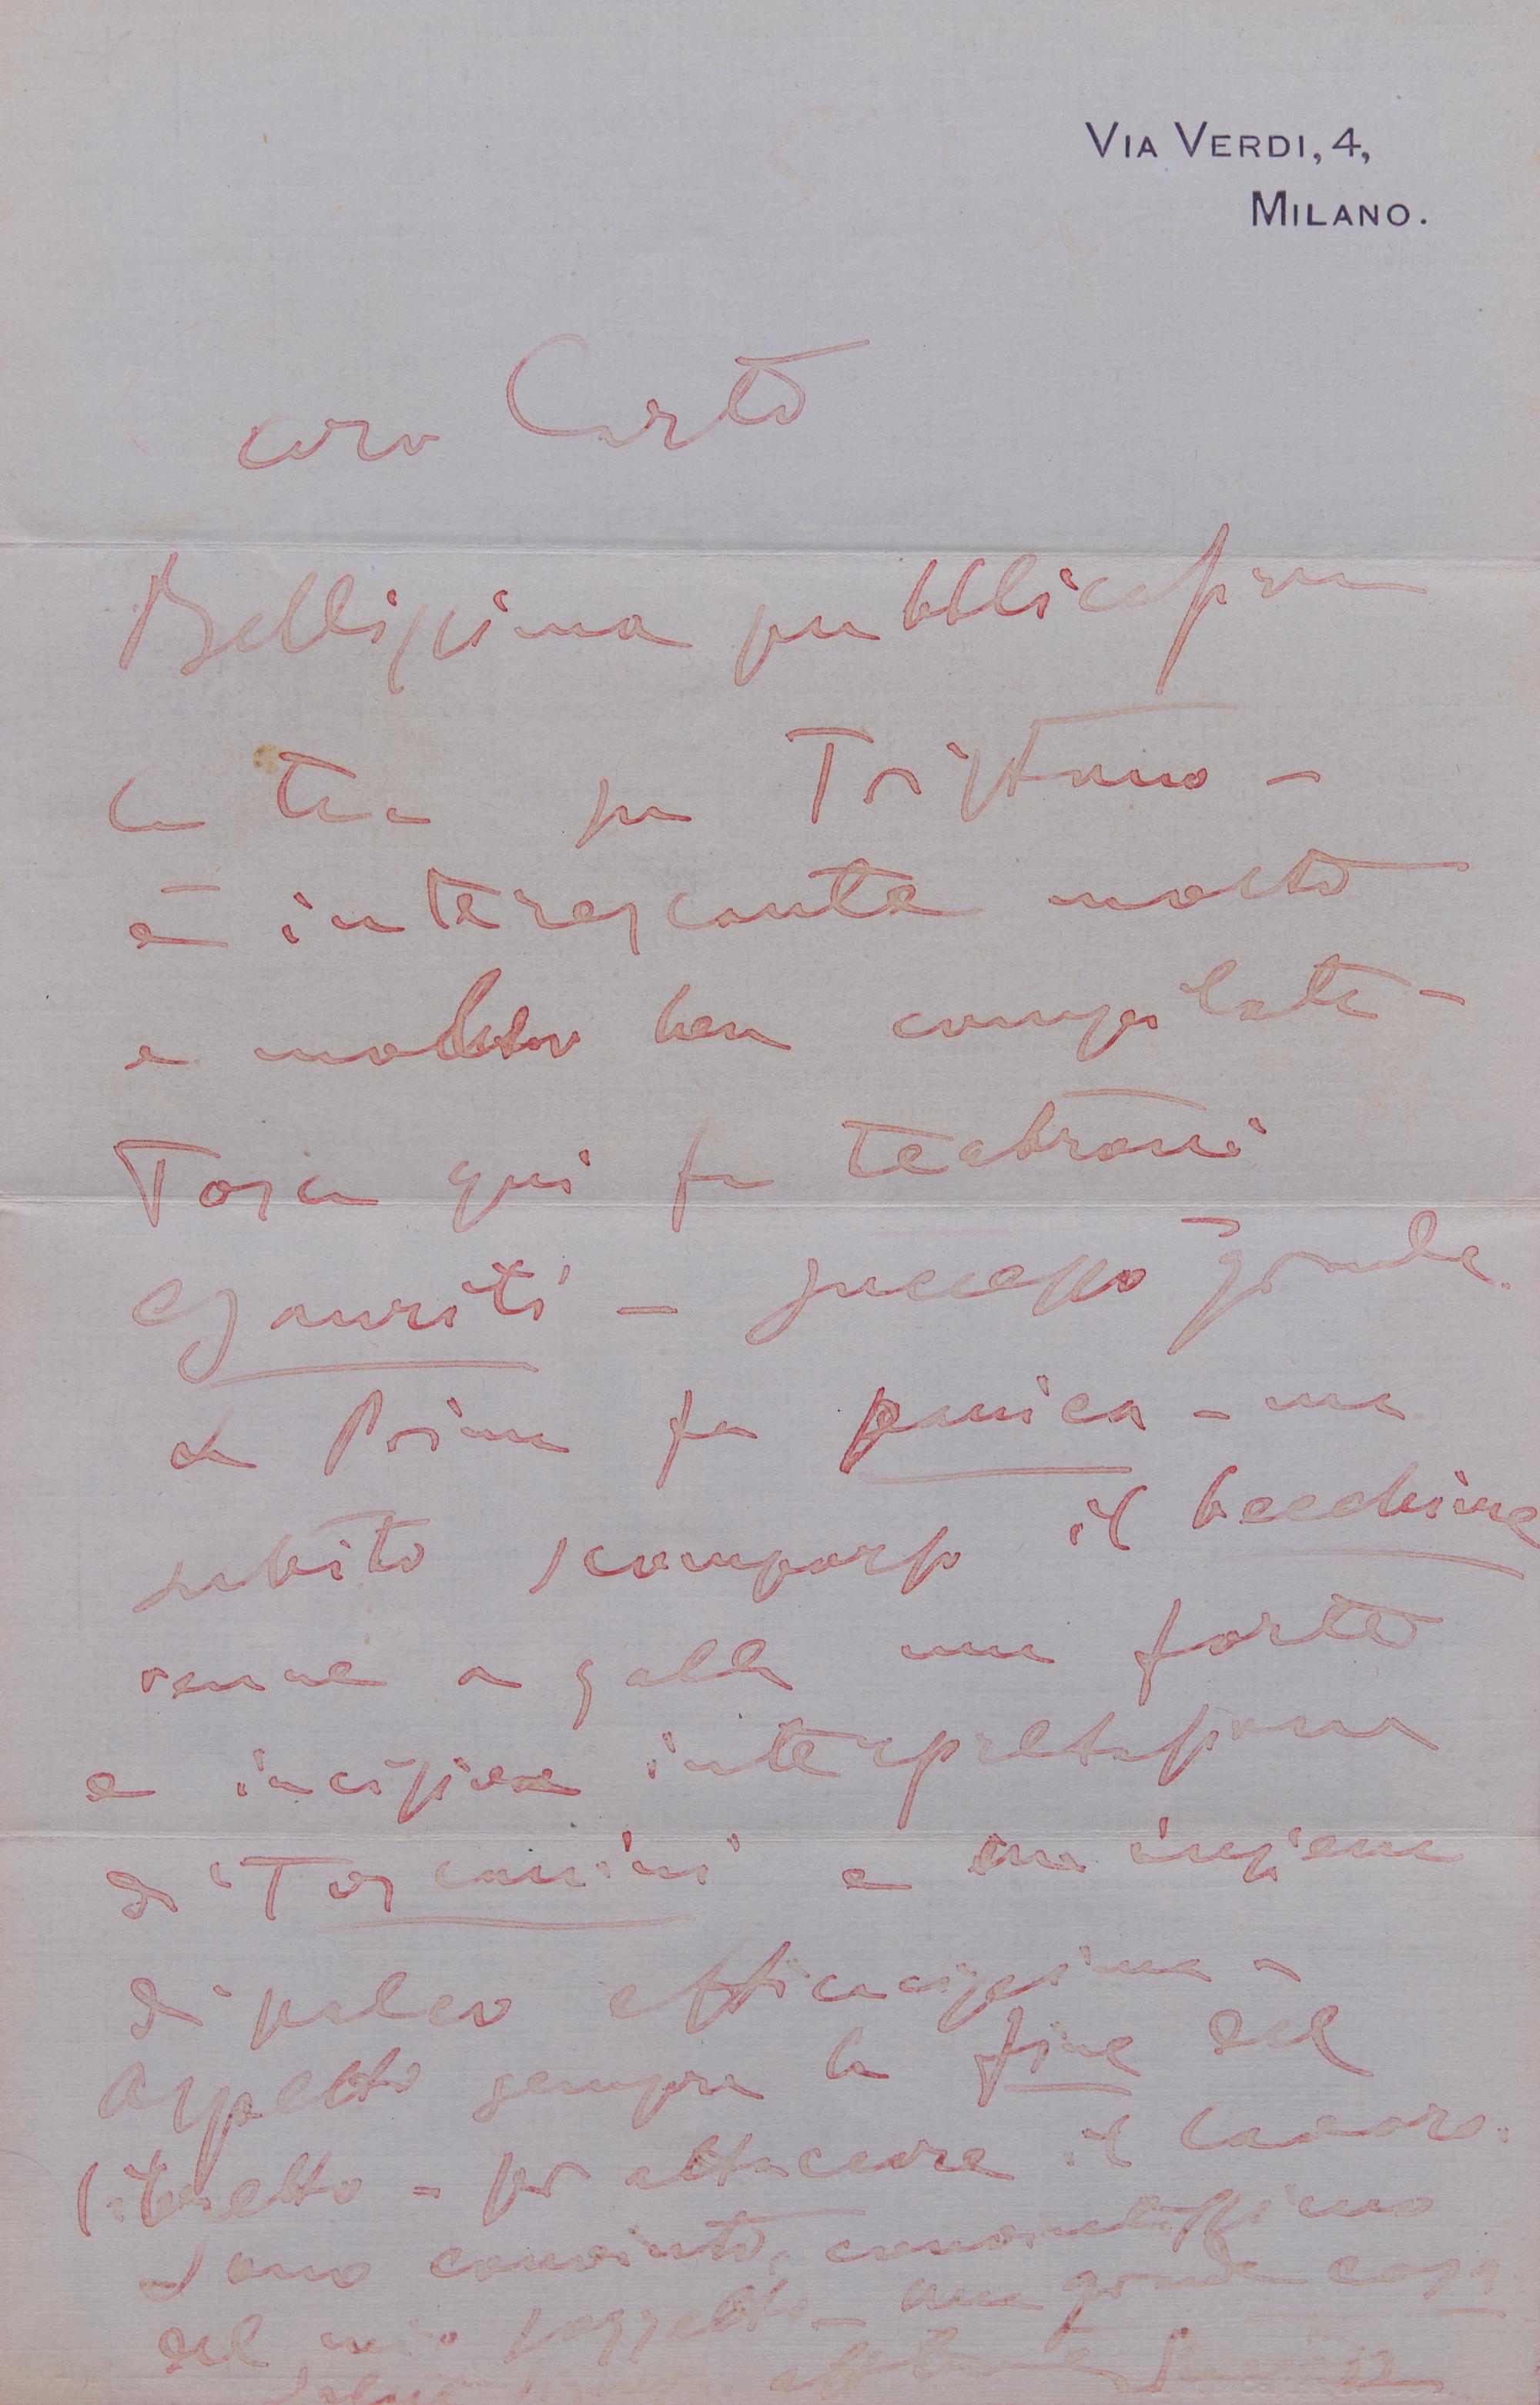 VIA VERDI, 4,
MILANO.
caro Carlo
Bellissima pubblicazione
la tua su Tristano –
è interessante molto
e molto ben compilata –
Tosca qui fa teatroni
esauriti – successo grande.
La Prima fu panica – ma
subito scomparso il becchime
venne a galla una forte
e incisiva interpretazione
di Toscanini e un insieme
di palco efficacissimo –
Aspetto sempre la fine del
libretto – per attaccare il lavoro.
Sono convinto, convintissimo
del mio soggetto – una grande cosa